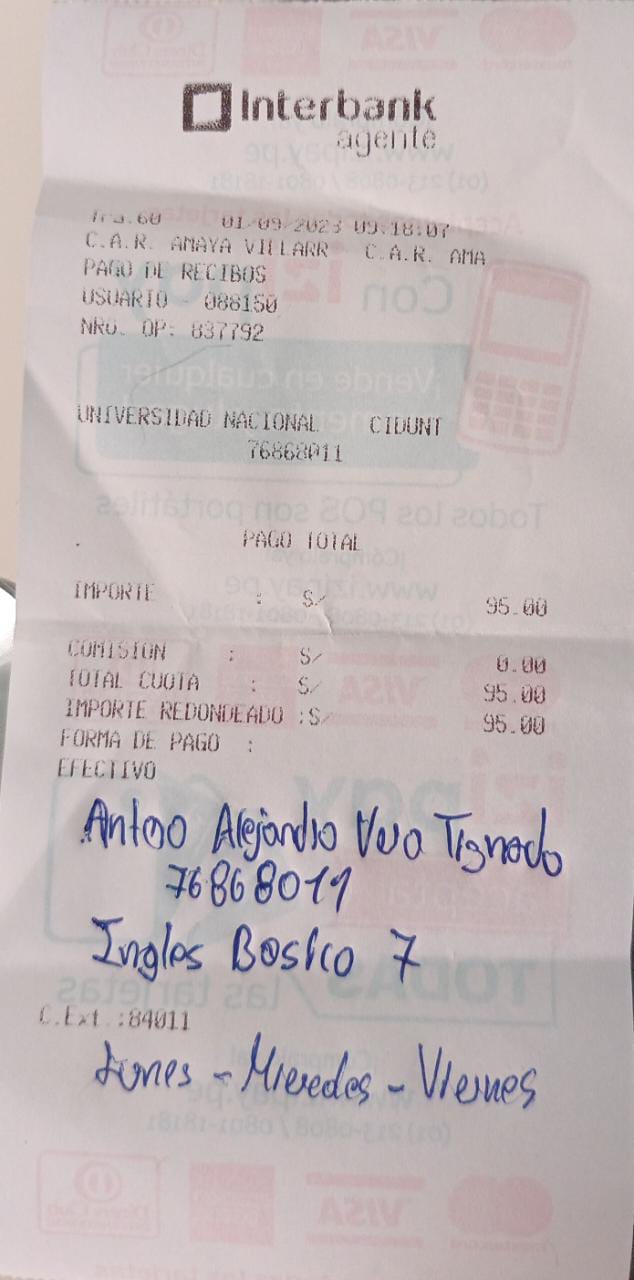 Interbank
agente
Tra.60 01-09-2023 09:18:07
C.A.R. AMAYA VILLARR C.A.R. AMA
PAGO DE RECIBOS
USUARIO 088150
NRO. OP: 837792
UNIVERSIDAD NACIONAL CIDUNT
76868011
PAGO TOTAL
IMPORTE : S/ 95.00
COMISION : S/ 0.00
TOTAL CUOTA : S/ 95.00
IMPORTE REDONDEADO :S/ 95.00
FORMA DE PAGO :
EFECTIVO
Alejandro
76868011
Ingles Basico 7
C.Ext.:84011
Lunes - Miercoles - Viernes